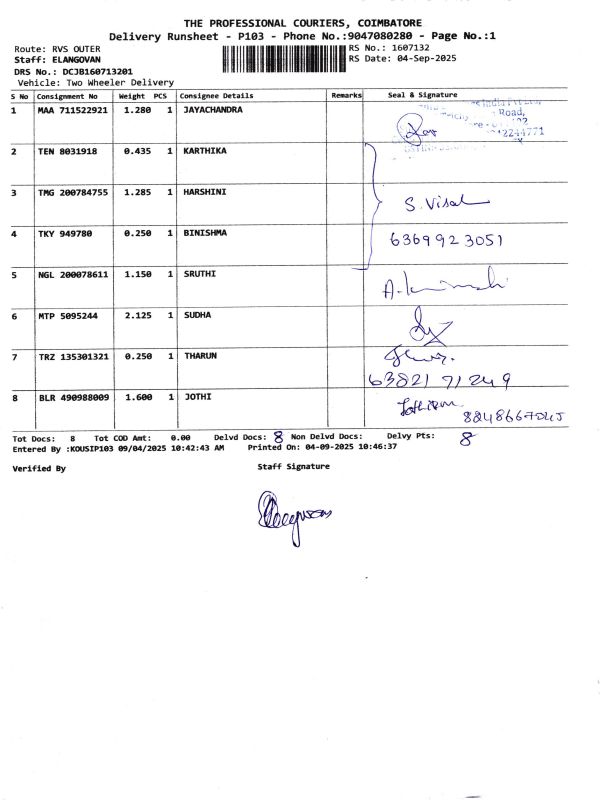 THE PROFESSIONAL COURIERS, COIMBATORE
Delivery Runsheet - P103 - Phone No.:9047080280 - Page No.:1
Route: RVS OUTER RS No.: 1607132
Staff: ELANGOVAN RS Date: 04-Sep-2025
DRS No.: DCJB160713201
Vehicle: Two Wheeler Delivery
S No Consignment No Weight PCS Consignee Details Remarks Seal & Signature
1 MAA 711522921 1.280 1 JAYACHANDRA
Road,
2244771
2 TEN 8031918 0.435 1 KARTHIKA
3 TMG 200784755 1.285 1 HARSHINI S. Visal
4 TKY 949780 0.250 1 BINISHMA 6369923051
5 NGL 200078611 1.150 1 SRUTHI
6 MTP 5095244 2.125 1 SUDHA
7 TRZ 135301321 0.250 1 THARUN
6382171249
8 BLR 490988009 1.600 1 JOTHI
Tot Docs: 8 Tot COD Amt: 0.00 Delvd Docs: 8 Non Delvd Docs: Delvy Pts: 8
Entered By :KOUSIP103 09/04/2025 10:42:43 AM Printed On: 04-09-2025 10:46:37
Verified By Staff Signature